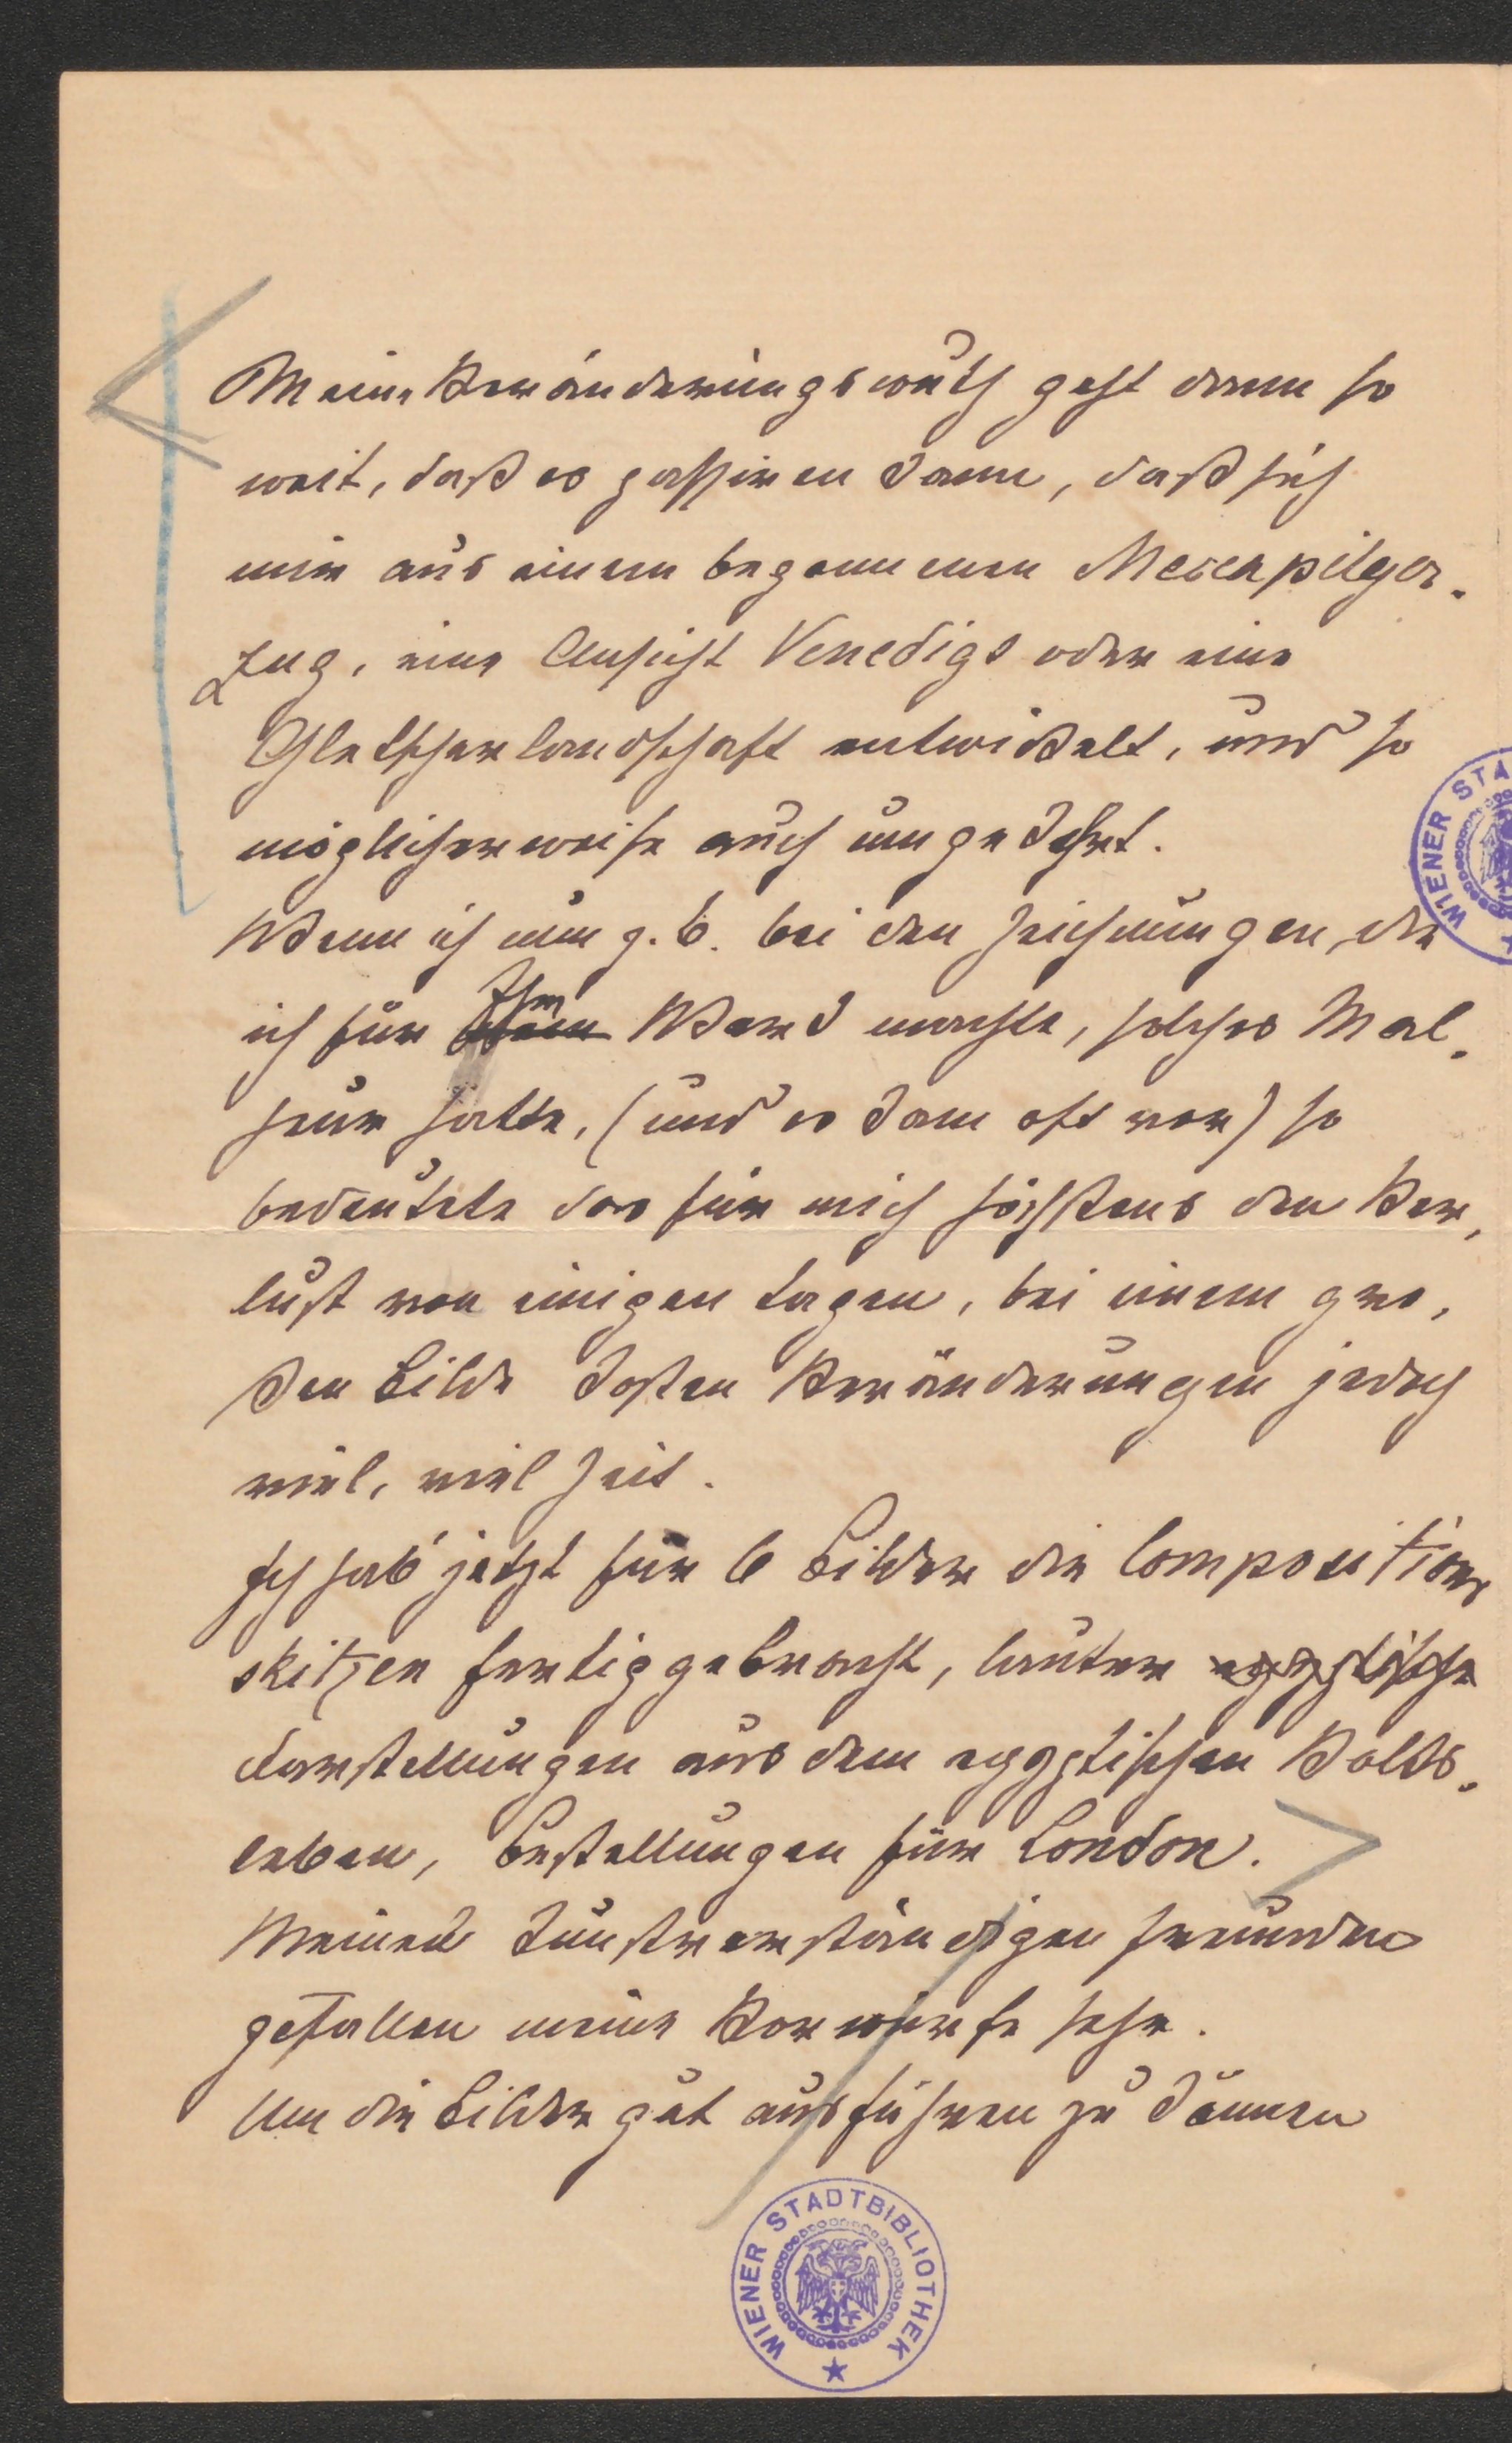 Meine Veränderungswuth geht dann so
weit, daß es passiren kann, daß sich
mir aus einem begonnenen Meccapilger-
zug, eine Ansicht Venedigs oder eine
Gletscherlandschaft entwickelt, und so
möglicherweise auch umgekehrt.
Wenn ich nun z. b. bei den Zeichnungen, die
ich für Ihr Werk machte, solches Mal-
heur hatte, (und es kam oft vor) so
bedeutete das für mich höchstens den Ver-
lust von einigen Tagen, bei einem gro-
ßen Bilde kosten Veränderungen jedoch
viel, viel Zeit.
Ich hab' jetzt für 6 Bilder die Compositions
skitzen fertig gebracht, lauter egyptische
Darstellungen aus dem egyptischen Volks-
leben, Bestellungen für London.
Meinen kunstverständigen Freunden
gefallen meine Vorwürfe sehr.
Um die Bilder gut ausführen zu können
WIENER STA
WIENER STADTBIBLIOTHEK